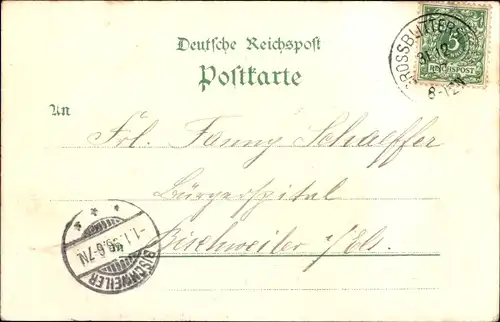 Deutsche Reichspost
Postkarte
An
Frl. Fanny Schaeffer
Bürgerspital
Bischweiler i/Els.
5
REICHSPOST
31.12
8-12N
-1.1. 6-7N
BISCHWEILER